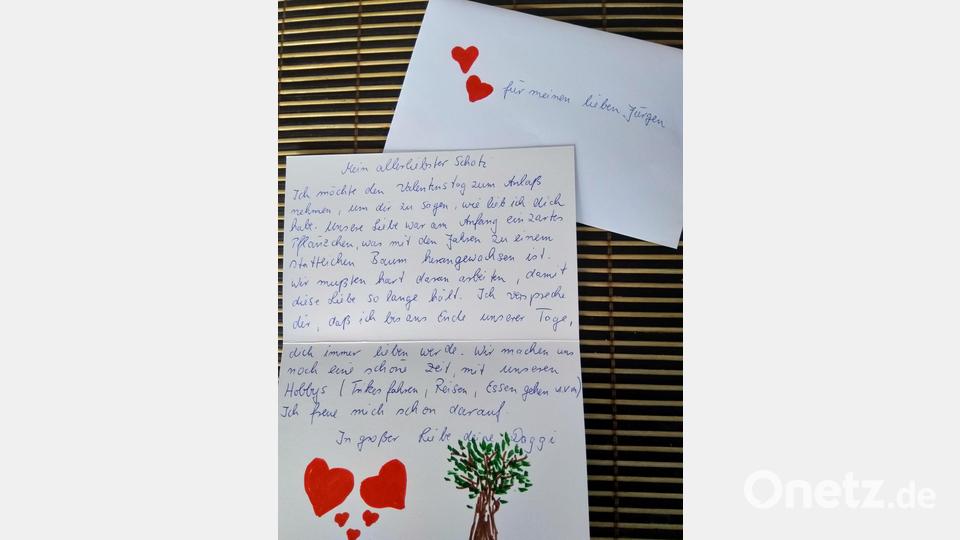 für meinen lieben Jürgen
Mein allerliebster Schatz
Ich möchte den Valentinstag zum Anlaß
nehmen, um dir zu sagen, wie lieb ich dich
habe. Unsere Liebe war am Anfang ein zartes
Pflänzchen, was mit den Jahren zu einem
stattlichen Baum herangewachsen ist.
Wir mußten hart daran arbeiten, damit
diese Liebe so lange hält. Ich verspreche
dir, daß ich bis ans Ende unserer Tage,
dich immer lieben werde. Wir machen uns
noch eine schöne Zeit, mit unseren
Hobbys (Trikefahren, Reisen, Essen gehen u.v.m)
Ich freue mich schon darauf.
In großer Liebe deine Daggi
Onetz.de